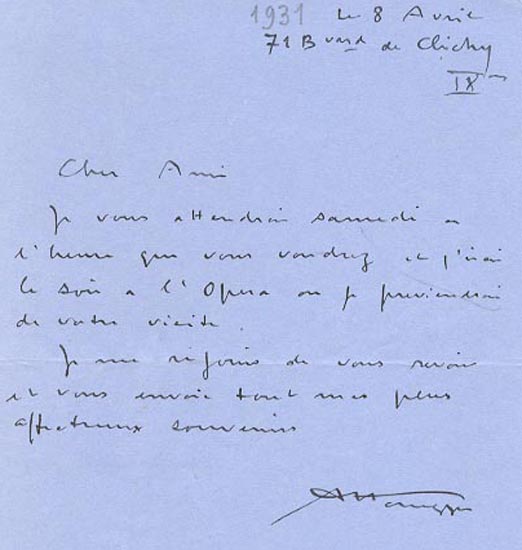 1931 Le 8 Avril
71 Bvard de Clichy
IXm
Cher Ami
Je vous attendrai samedi a
l'heure que vous voudrez et j'irai
le soir a l'Opera ou je previendrai
de votre visite.
Je me rejouis de vous revoir
et vous envoie tout mes plus
affectueux souvenirs
AHonegger